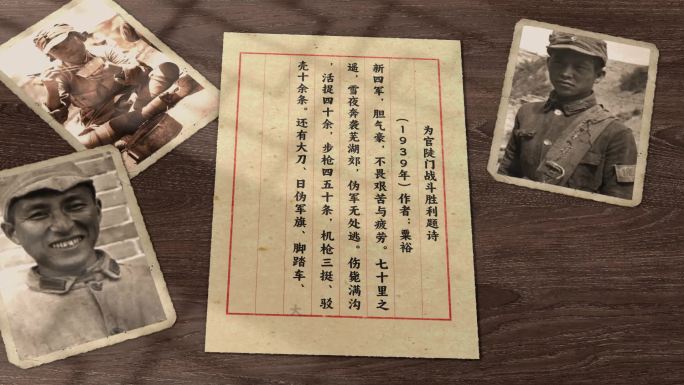 为官陡门战斗胜利题诗
（1939年）作者：粟裕
新四军，胆气豪，不畏艰苦与疲劳。七十里之
遥，雪夜奔袭芜湖郊，伪军无处逃。伤毙满沟
，活捉四十余，步枪四五十条，机枪三挺、驳
壳十余条。还有大刀、日伪军旗、脚踏车、
大